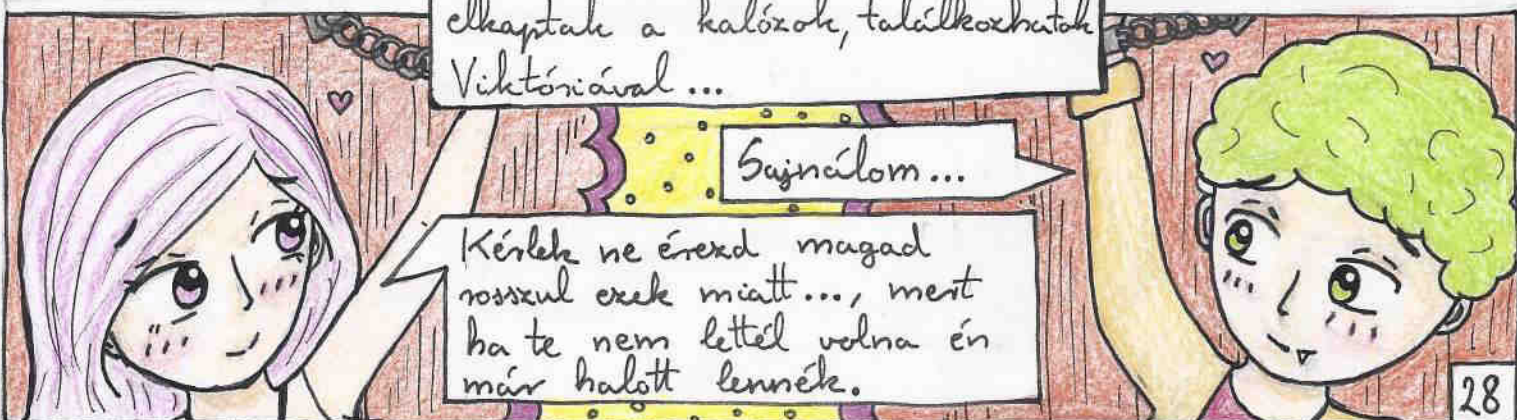 elkaptak a kalózok, találkozhatok
Viktóriával...
Sajnálom...
Kérlek ne érezd magad
rosszul ezek miatt..., mert
ha te nem lettél volna én
már halott lennék.
28